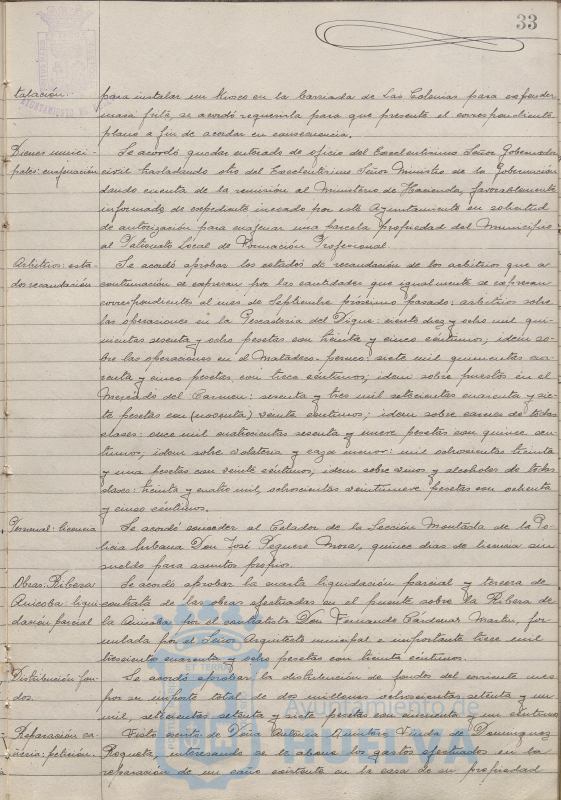 33
talación. para instalar un Kiosco en la barriada de Las Colonias para expender
masa frita, se acordó requerirla para que presente el correspondiente
plano a fin de acordar en consecuencia.
Bienes munici- Se acordó quedar enterado de oficio del Excelentísimo Señor Gobernador
pales: enajenación civil trasladando otro del Excelentísimo Señor Ministro de la Gobernación
dando cuenta de la remisión al Ministerio de Hacienda, favorablemente
informado, de expediente incoado por este Ayuntamiento en solicitud
de autorización para enajenar una parcela propiedad del Municipio
al Patronato Local de Formación Profesional.
Arbitrios: esta- Se acordó aprobar los estados de recaudación de los arbitrios que a
dos recaudación continuación se expresan por las cantidades que igualmente se expresan
correspondientes al mes de Septiembre próximo pasado: arbitrios sobre
las operaciones en la Pescadería del Dique: ciento diez y ocho mil qui-
nientas sesenta y ocho pesetas con treinta y cinco céntimos; idem so-
bre las operaciones en el Matadero siete mil quinientas
y cinco pesetas con trece céntimos; idem sobre puestos en el
Mercado del Carmen: sesenta y tres mil setecientas cuarenta y sie-
te pesetas con (noventa) veinte céntimos; idem sobre carnes de todas
clases: once mil cuatrocientas sesenta y nueve pesetas con quince cén-
timos; idem sobre volatería y caza menor: mil ochocientas treinta
y una pesetas con veinte céntimos; idem sobre vinos y alcoholes de todas
clases: treinta y cuatro mil, ochocientas veintinueve pesetas con ochenta
y cinco céntimos.
Personal: licencia Se acordó conceder al Celador de la Sección Montada de la Po-
licía Urbana Don José Peguero Mora, quince días de licencia sin
sueldo para asuntos propios.
Obras: Ribera Se acordó aprobar la cuarta liquidación parcial y tercera de
Anicoba: liqui- contrata de las obras efectuadas en el puente sobre la Ribera de
dación parcial la Anicoba por el contratista Don Fernando Cárdenas Martín, for-
mulada por el Señor Arquitecto municipal e importante trece mil
trescientas cuarenta y ocho pesetas con treinta céntimos.
Distribución fon- Se acordó aprobar la distribución de fondos del corriente mes
dos. por su importe total de dos millones ochocientas setenta y un
mil, setecientas setenta y siete pesetas con cincuenta y un céntimos
Reparación ca- Visto escrito de Doña Antonia Quintero Viuda de Domínguez
ñería: petición. Roqueta, interesando se le abone los gastos efectuados en la
reparación de un caño existente en la casa de su propiedad
Ayuntamiento de
HUELVA